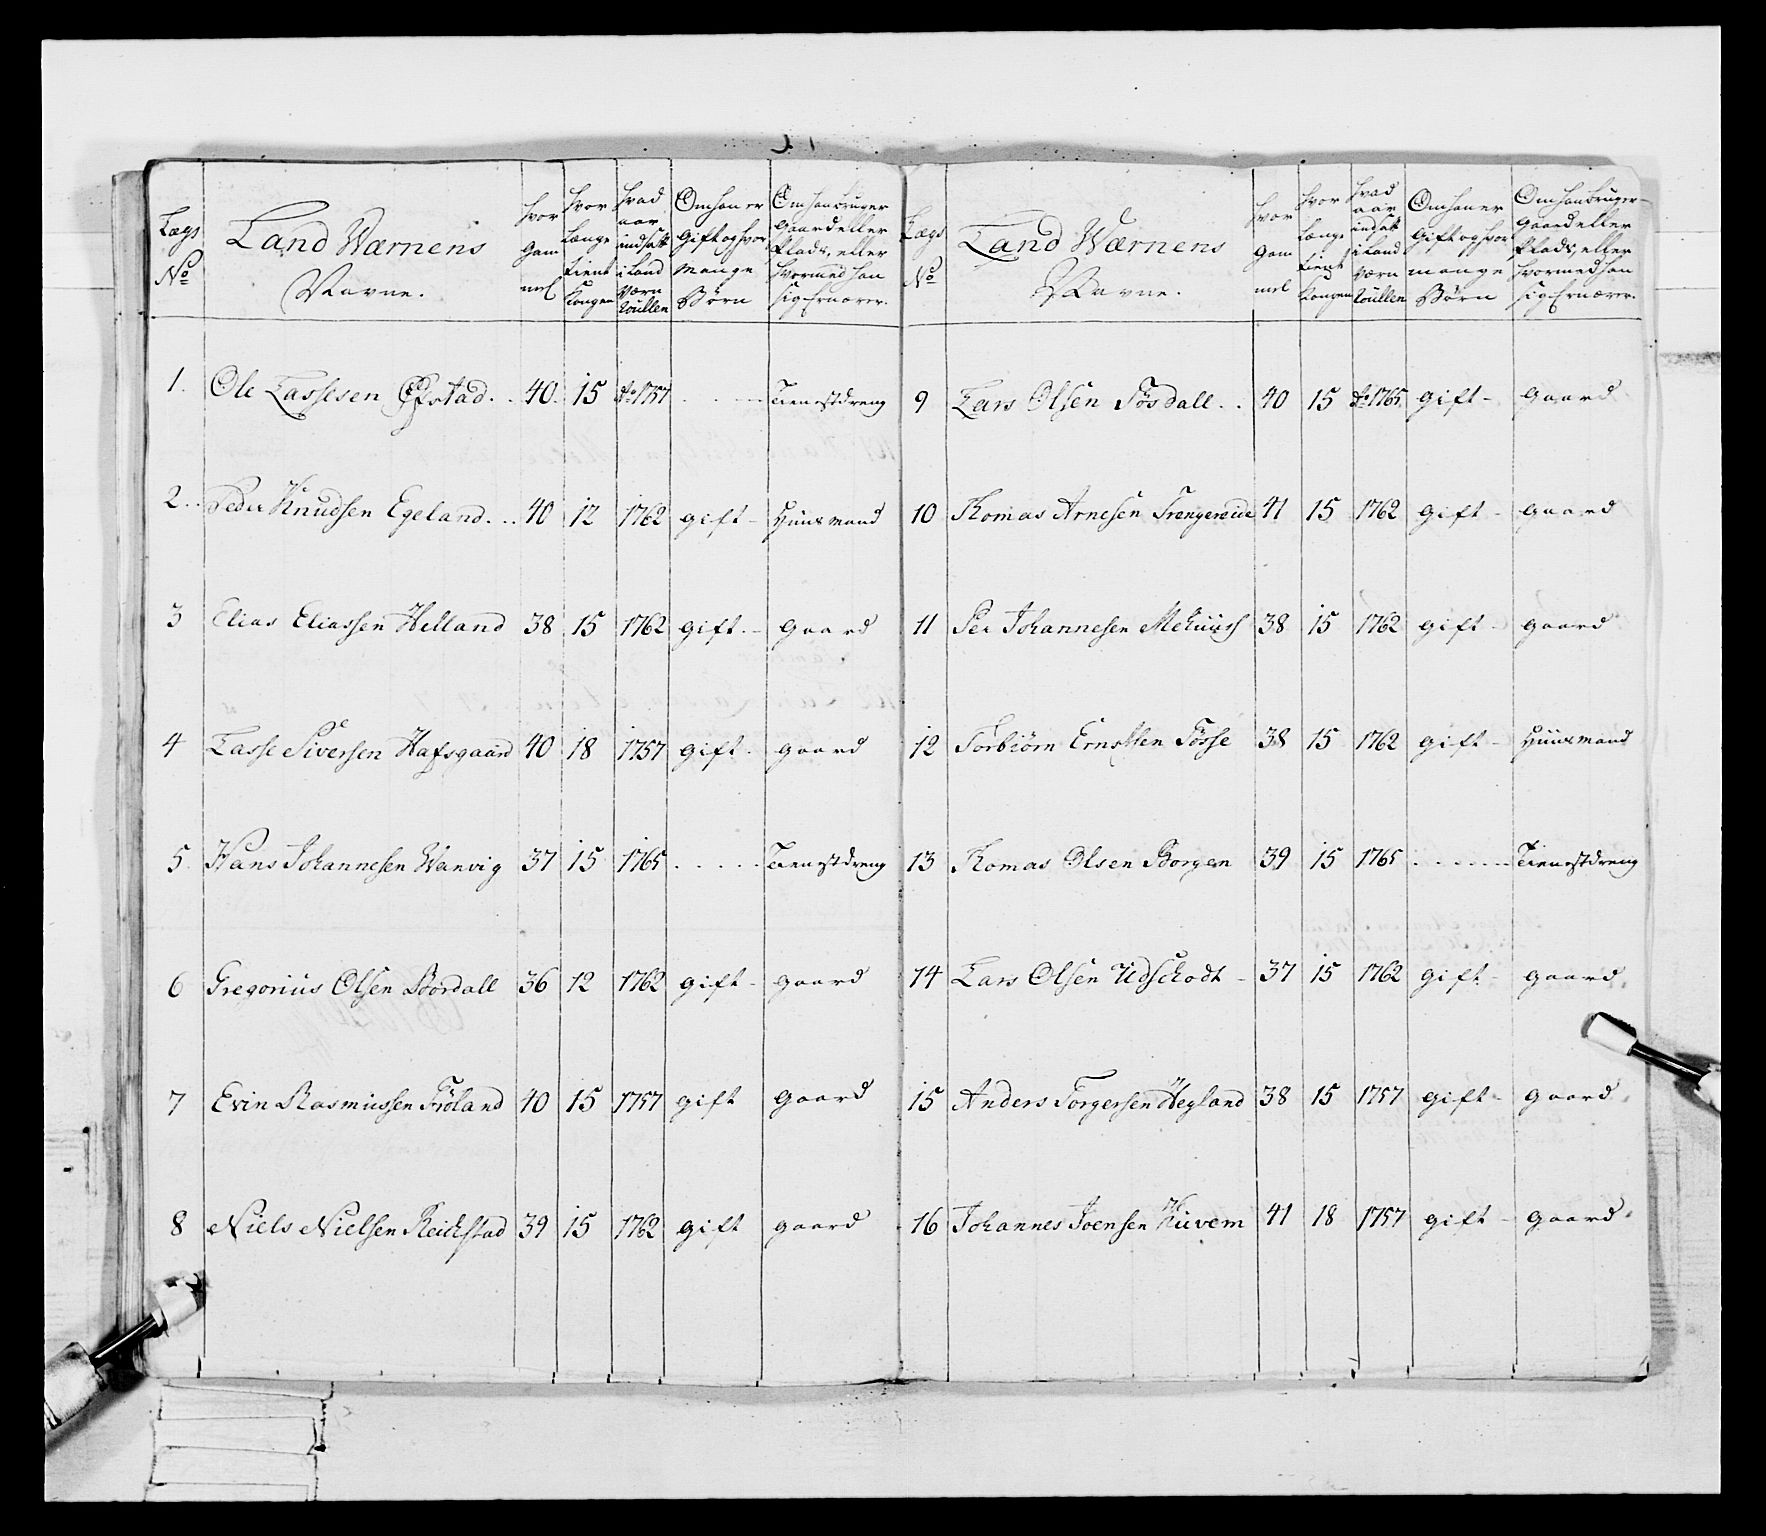 Lægs No
Land Wærnens Navne.
Hvor Gam mel
Hvor Længe tient Kongen
Hvad aar indsatt i Land Værn Roullen
Om han er Gift og hvor mange Børn
Om han bruger Gaard eller Plads, eller hvormed han sig Ernærer.
1. Ole Lassesen 40. 15 Ao 1757 Tienestdreng
2. Peder Knudsen Egeland 40 12 1762 gift Huusmand
3 Elias Eliassen Helland 38 15 1762 gift gaard
4 Lasse Siversen Hafsgaard 40 18 1757 gift gaard
5. Hans Johannesen Wanvig 37 15 1765 Tienestdreng
6 Gregorius Olsen Bordall 36 12 1762 gift gaard
7 Evin Rasmussen Fröland 40 15 1757 gift gaard
8 Niels Nielsen Reickstad 39 15 1762 gift gaard
Lægs No
Land Wærnens Navne.
Hvor Gam mel
Hvor Længe tient Kongen
Hvad aar indsatt i Land Værn Roullen
Om han er Gift og hvor mange Børn
Om han bruger Gaard eller Plads, eller hvormed han sig Ernærer.
9 Lars Olsen Fösdall 40 15 Ao 1765 gift gaard
10 Thomas Arnesen Trengereide 41 15 1762 gift gaard
11 Per Johannesen 38 15 1762 gift gaard
12 Torbiörn Fosse 38 15 1762 gift Huusmand
13 Thomas Olsen Borgen 39 15 1765 Tienestdreng
14 Lars Olsen Udschodt 37 15 1762 gift gaard
15 Anders Torgersen Hegland 38 15 1757 gift gaard
16 Johannes Joensen Kuvem 41 18 1757 gift gaard